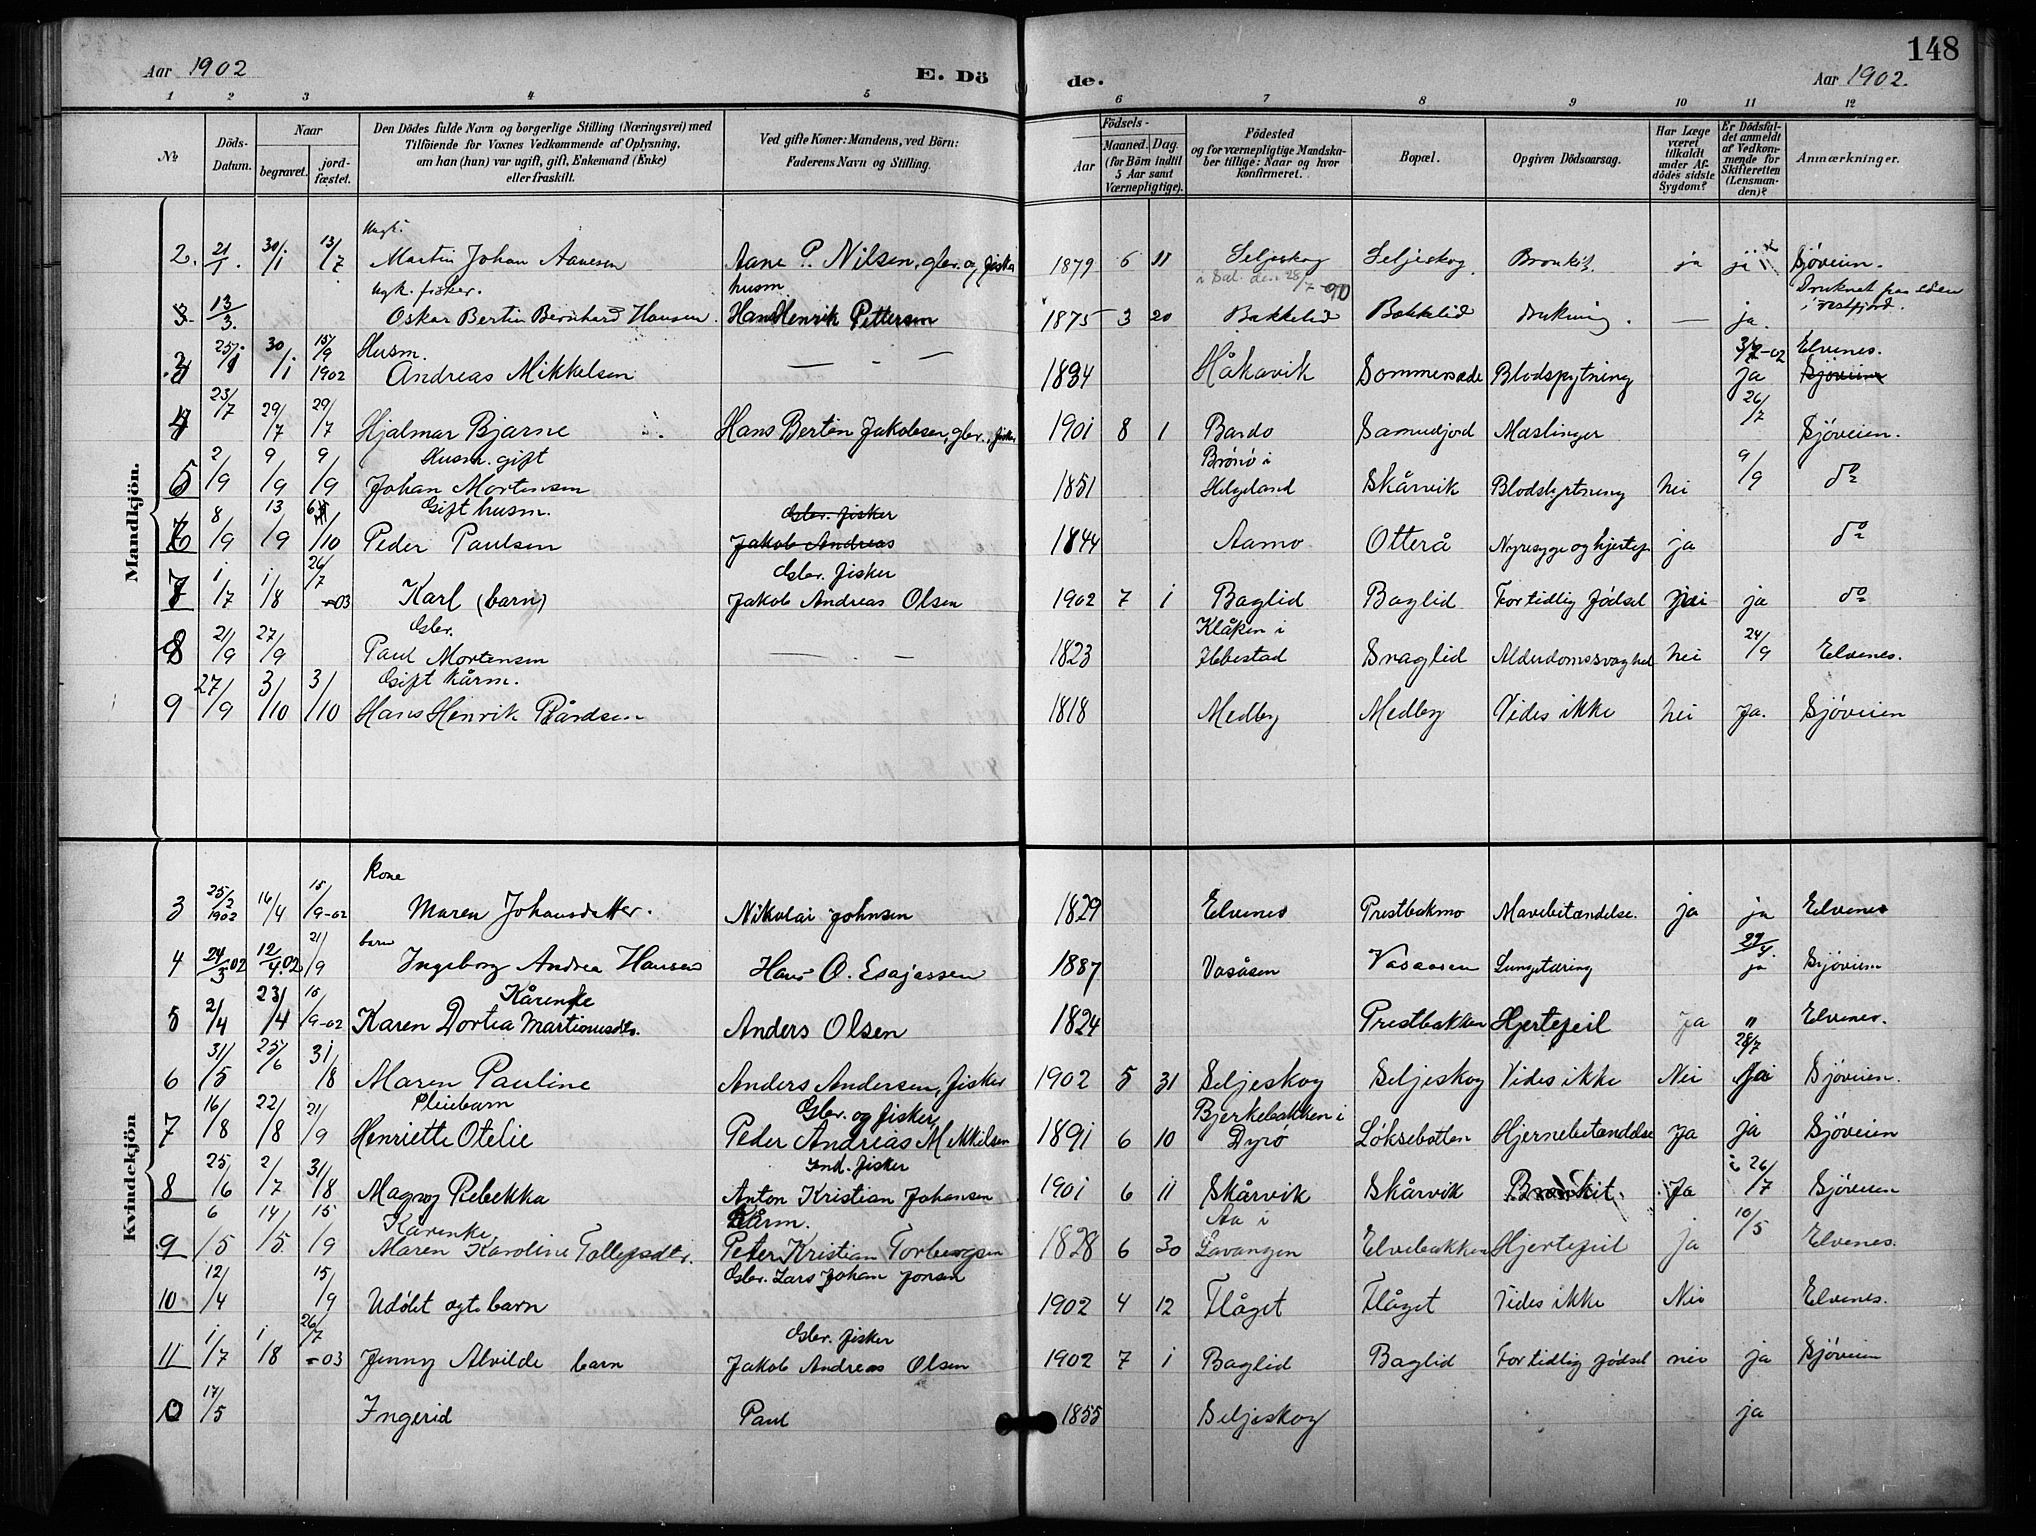 Aar 1902
E. Dö
de.
148
Aar 1902.
1 2 3 4 5 6 7 8 9 10 11 12
№
Döds-Datum.
Naar
begravet.
jord-fæstet.
Den Dödes fulde Navn og borgerlige Stilling (Næringsvei) med
Tilföiende for Voxnes Vedkommende af Oplysning,
om han (hun) var ugift, gift, Enkemand (Enke)
eller fraskilt.
Ved gifte Koner: Mandens, ved Börn:
Faderens Navn og Stilling.
Födsels-
Aar
Maaned. Dag.
(for Börn indtil
5 Aar samt
Værnepligtige).
Födested
og for værnepligtige Mandska-
ber tillige: Naar og hvor
konfirmeret.
Bopæl.
Opgiven Dödsaarsag.
Har Læge
været
tilkaldt
under Af-
dödes sidste
Sygdom?
Er Dödsfal-
det anmeldt
af Vedkom-
mende for
Skifteretten
(Lensman-
den)?
Anmærkninger.
Mandkjön.
Ungk.
2. 21/1. 30/1 13/7 Martin Johan Aanesen Aane P. Nilsen, gbr. og fisker 1879 6 11 Seljeskog Seljeskog Bronkit. ja ja Sjöveien.
i Sal. den 28/7 -90
Ungk. fisker. husm Druknet paa
3. 13/3. Oskar Bertin Bernhard Hansen. Hans Henrik Pettersen 1875 3 20 Bakkelid Bakkelid drukning. — ja. i vestfjord.
Husm. Elvenes.
25/1 30/1 15/9 1902 Andreas Mikkelsen — - — 1834 Håkavik Sommersæde Blodspytning ja Sjöveien
4 23/7 29/7 29/7 Hjalmar Bjarne Hans Bertin Jakobsen, gbr., fisker 1901 8 1 Bardo Samudjord Mæslinger 26/7 Sjöveien.
Husm. gift Brönö i
5 2/9 9/9 9/9 Johan Mortensen 1851 Helgeland Skårvik Blodstyrtning nei 9/9 do
Gift husm. Gbr. fisker
6 8/9 13/9 /10 Peder Paulsen Jakob Andreas 1844 Aamo Otterå Nyresyge og hjertef. ja do
Gbr. fisker
7 1/7 1/8 26/7 -03 Karl (barn) Jakob Andreas Olsen 1902 7 1 Baglid Baglid For tidlig födsel nei ja do
Gbr. Klåpen i
8 21/9 27/9 Paul Mortensen — - — 1823 Ibbestad Snaglid Alderdomssvaghed nei 24/9 Elvenes.
Gift kårm.
9 27/9 3/10 3/10 Hans Henrik Bårdsen 1818 Medby Medby Vides ikke nei Ja. Sjöveien
Kvindekjön
Kone
3 25/2 1902 16/4 15/9-02 Maren Johansdatter. Nikolai Johnsen 1829 Elvenes Prestbakmo Mavebetændelse. ja ja Elvenes
barn
4 24/3 02 12/4 02 21/9 Ingeborg Andrea Hansen Hans O. Esajassen 1887 Vasåsen Vasaasen Lungetæring 29/4. ja Sjöveien
Kårenke
5 2/4 23/4 15/9-02 Karen Dortea Martinusdtr. Anders Olsen 1824 Prestbakken Hjertefeil Ja " Elvenes.
6 31/5 25/6 31/8 Maren Pauline Anders Andersen, fisker 1902 5 31 Seljeskog Seljeskog Vides ikke Nei 28/7 Sjöveien.
Pleiebarn Gbr. og fisker Bjerkebakken i
7 16/8 22/8 21/9 Henriette Otelie Peder Andreas Mikkelsen 1891 6 10 Dyrö Löksebotten Hjernebetændelse Ja ja Sjöveien
Ind. fisker
8 25/6 2/7 31/8 Magny Rebekka Anton Kristian Johansen 1901 6 11 Skårvik Skårvik Bronkit. Ja 26/7 Sjöveien
Kårenke Kårm. Aa i
9 6/5 14/5 15/9 Maren Karoline Tollefsdtr. Peter Kristian Torbergsen 1828 6 30 Lavangen Elvebakken Hjertefeil ja 10/5 Elvenes.
Gbr. Lars Johan Jonsen
10 12/4 15/9 Udöbt egte barn 1902 4 12 Flåget Flåget Vides ikke Nei Elvenes.
Gbr. fisker
11 1/7 1/8 26/7 -03 Jenny Alvilde barn Jakob Andreas Olsen 1902 7 1 Baglid Baglid For tidlig födsel nei ja Sjöveien
0 17/5 Ingerid Paul 1855 Seljeskog ja